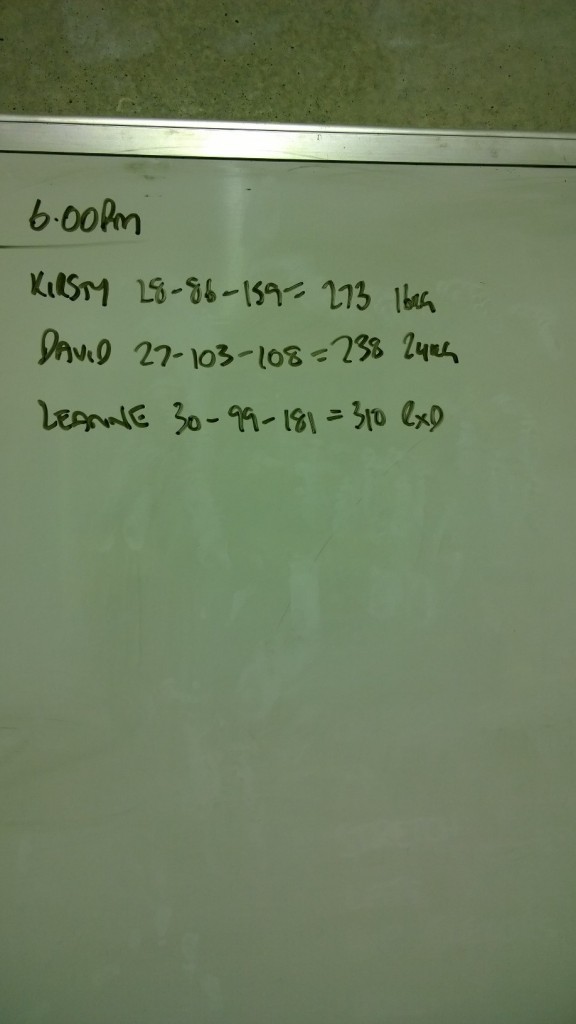 6.00Pm
KIRSTY 28-86-159= 273 16KG
DAVID 27-103-108=238 24KG
LEANNE 30-99-181=310 RxD